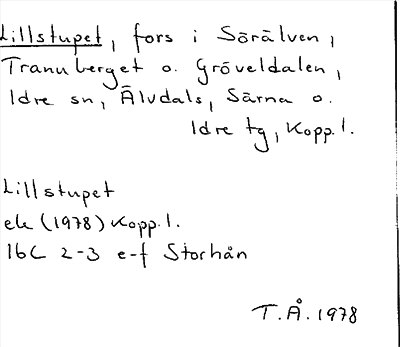 Lillstupet, fors i Sörälven,
Tranuberget o. Gröveldalen,
Idre sn, Älvdals, Särna o.
Idre tg, Kopp. l.
Lillstupet
ek (1978) Kopp. l.
16C 2-3 e-f Storhån
T.Å. 1978